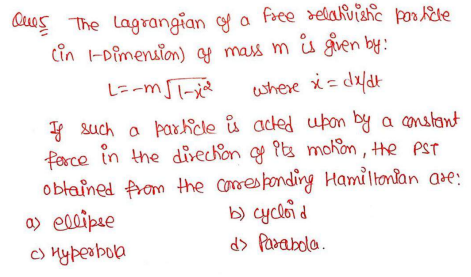 Ques The Lagrangian of a free relativistic particle
(in 1-Dimension) of mass m is given by:
L=-m√1-ẋ² where ẋ = dx/dt
If such a particle is acted upon by a constant
force in the direction of its motion, the PST
obtained from the corresponding Hamiltonian are:
a) ellipse b) cycloid
c) Hyperbola d) Parabola.